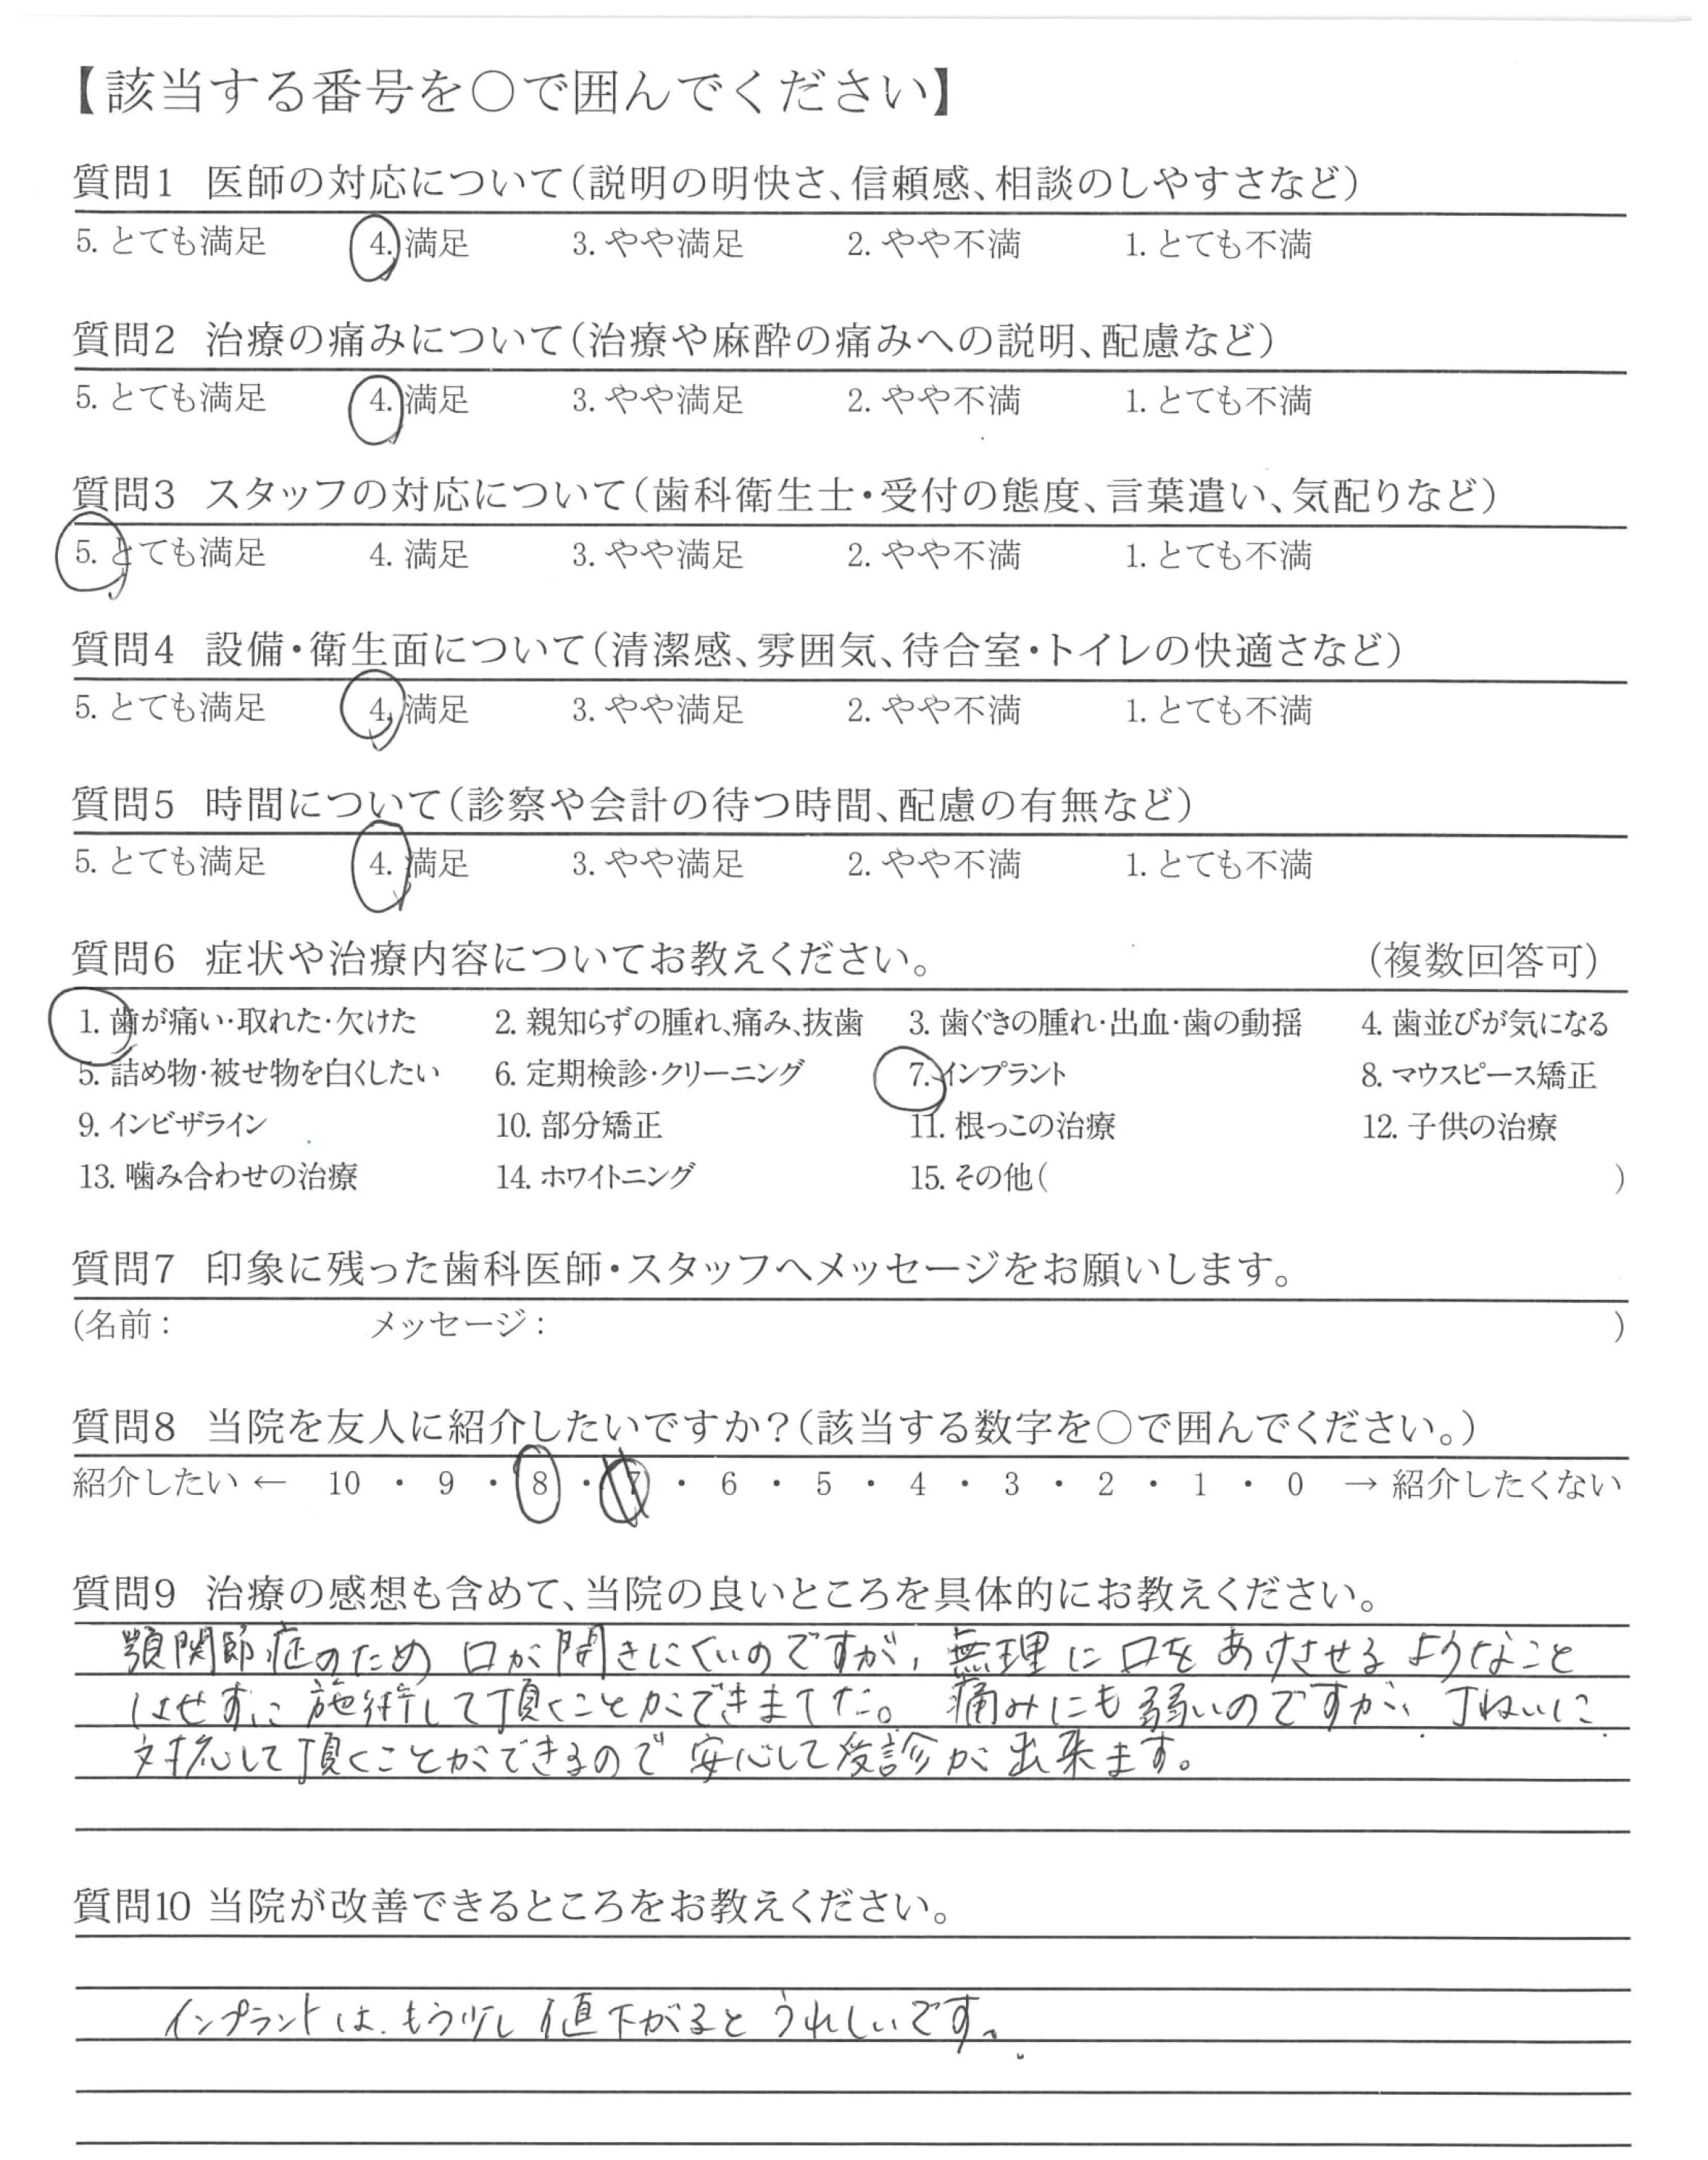 【該当する番号を○で囲んでください】
質問1 医師の対応について(説明の明快さ、信頼感、相談のしやすさなど)
5. とても満足 4. 満足 3. やや満足 2. やや不満 1. とても不満
質問2 治療の痛みについて(治療や麻酔の痛みへの説明、配慮など)
5. とても満足 4. 満足 3. やや満足 2. やや不満 1. とても不満
質問3 スタッフの対応について(歯科衛生士・受付の態度、言葉遣い、気配りなど)
5. とても満足 4. 満足 3. やや満足 2. やや不満 1. とても不満
質問4 設備・衛生面について(清潔感、雰囲気、待合室・トイレの快適さなど)
5. とても満足 4. 満足 3. やや満足 2. やや不満 1. とても不満
質問5 時間について(診察や会計の待つ時間、配慮の有無など)
5. とても満足 4. 満足 3. やや満足 2. やや不満 1. とても不満
質問6 症状や治療内容についてお教えください。 (複数回答可)
1. 歯が痛い・取れた・欠けた 2. 親知らずの腫れ、痛み、抜歯 3. 歯ぐきの腫れ・出血・歯の動揺 4. 歯並びが気になる
5. 詰め物・被せ物を白くしたい 6. 定期検診・クリーニング 7. インプラント 8. マウスピース矯正
9. インビザライン 10. 部分矯正 11. 根っこの治療 12. 子供の治療
13. 噛み合わせの治療 14. ホワイトニング 15. その他( )
質問7 印象に残った歯科医師・スタッフへメッセージをお願いします。
(名前: メッセージ: )
質問8 当院を友人に紹介したいですか?(該当する数字を○で囲んでください。)
紹介したい ← 10 ・ 9 ・ 8 ・ 7 ・ 6 ・ 5 ・ 4 ・ 3 ・ 2 ・ 1 ・ 0 → 紹介したくない
質問9 治療の感想も含めて、当院の良いところを具体的にお教えください。
顎関節症のため 口が開きにくいのですが、無理に口をあけさせるようなこと
はせずに施術して頂くことができました。痛みにも弱いのですが、丁ねいに
対応して頂くことができるので安心して受診が出来ます。
質問10 当院が改善できるところをお教えください。
インプラントは、もう少し値下がるとうれしいです。